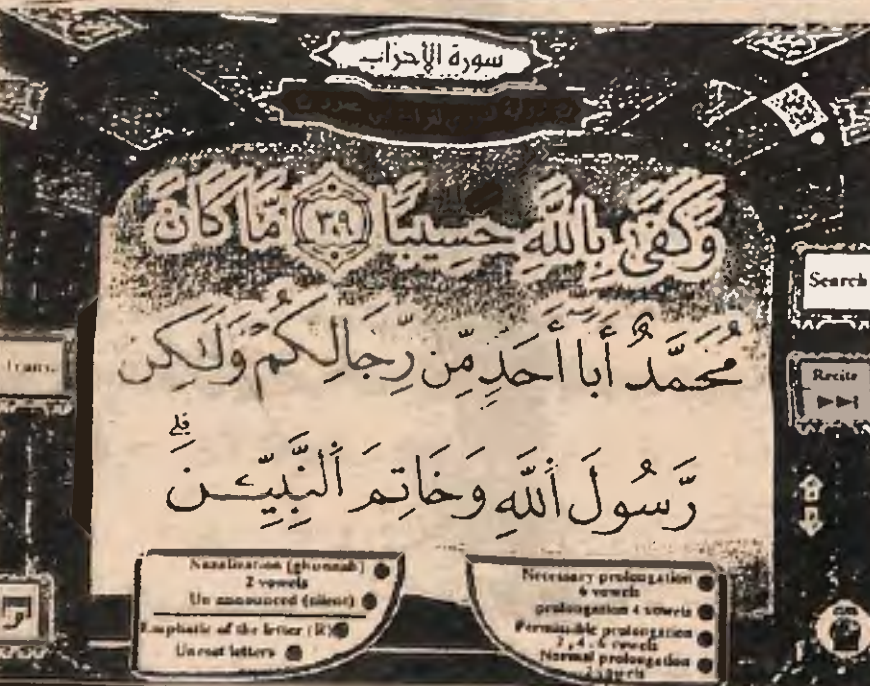 سورة الأحزاب
وَكَفَىٰ بِاللَّهِ حَسِيبًا ﴿٣٩﴾ مَّا كَانَ
مُحَمَّدٌ أَبَا أَحَدٍ مِّن رِّجَالِكُمْ وَلَٰكِن
رَّسُولَ ٱللَّهِ وَخَاتِمَ ٱلنَّبِيِّـۧنَ ۗ
Search
Trans.
Recite
Nazalization (ghunnah)
2 vowels
Un announced (silent)
Emphatic of the letter (R)
Unrest letters
Necessary prolongation
6 vowels
prolongation 4 vowels
Permissible prolongation
2, 4, 6 vowels
Normal prolongation
2 vowels